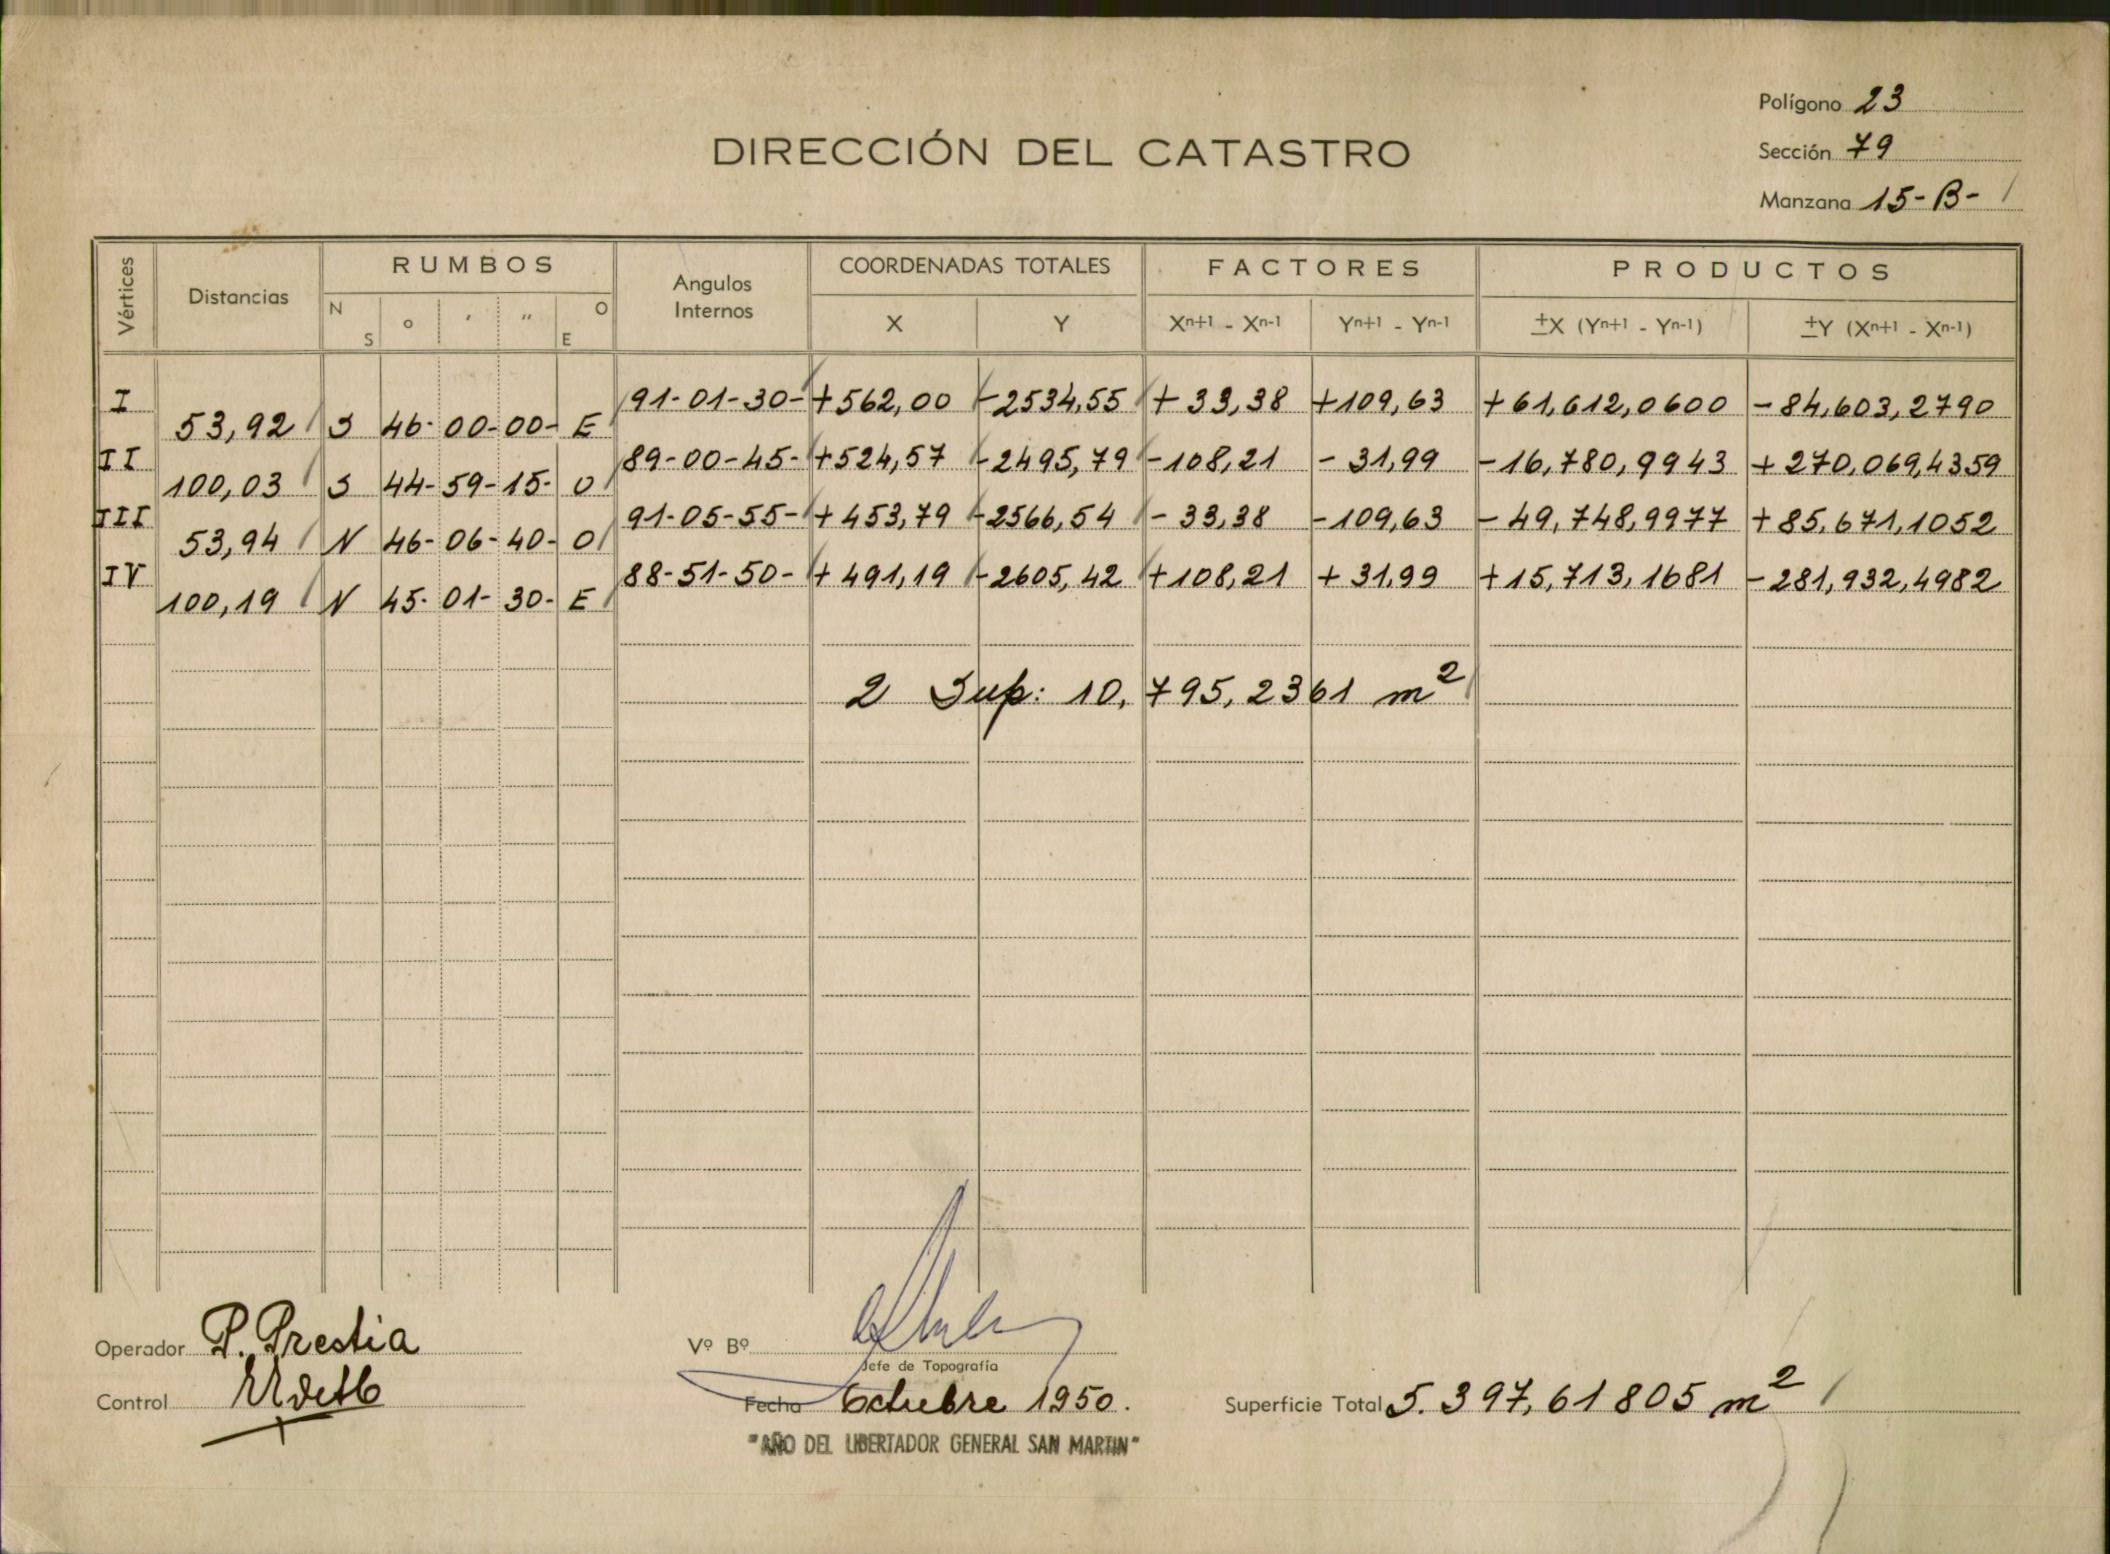 Polígono 23
DIRECCIÓN DEL CATASTRO
Sección 79
Manzana 15-B-
Vértices Distancias RUMBOS Angulos Internos COORDENADAS TOTALES FACTORES PRODUCTOS
N S o ' " O E X Y Xn+1 - Xn-1 Yn+1 - Yn-1 ±X (Yn+1 - Yn-1) ±Y (Xn+1 - Xn-1)
I 91-01-30- +562,00 -2534,55 +33,38 +109,63 +61,612,0600 -84,603,2790
53,92 S 46-00-00- E
II 89-00-45- +524,57 -2495,79 -108,21 -31,99 -16,780,9943 +270,069,4359
100,03 S 44-59-15- O
III 91-05-55- +453,79 -2566,54 -33,38 -109,63 -49,748,9977 +85,671,1052
53,94 N 46-06-40- O
IV 88-51-50- +491,19 -2605,42 +108,21 +31,99 +15,713,1681 -281,932,4982
100,19 N 45-01-30- E
2 Sup: 10,795,2361 m2
Operador P. Prestia
Vº Bº
Jefe de Topografía
Control
Fecha Octubre 1950.
Superficie Total 5.397,61805 m2
"AÑO DEL LIBERTADOR GENERAL SAN MARTIN"